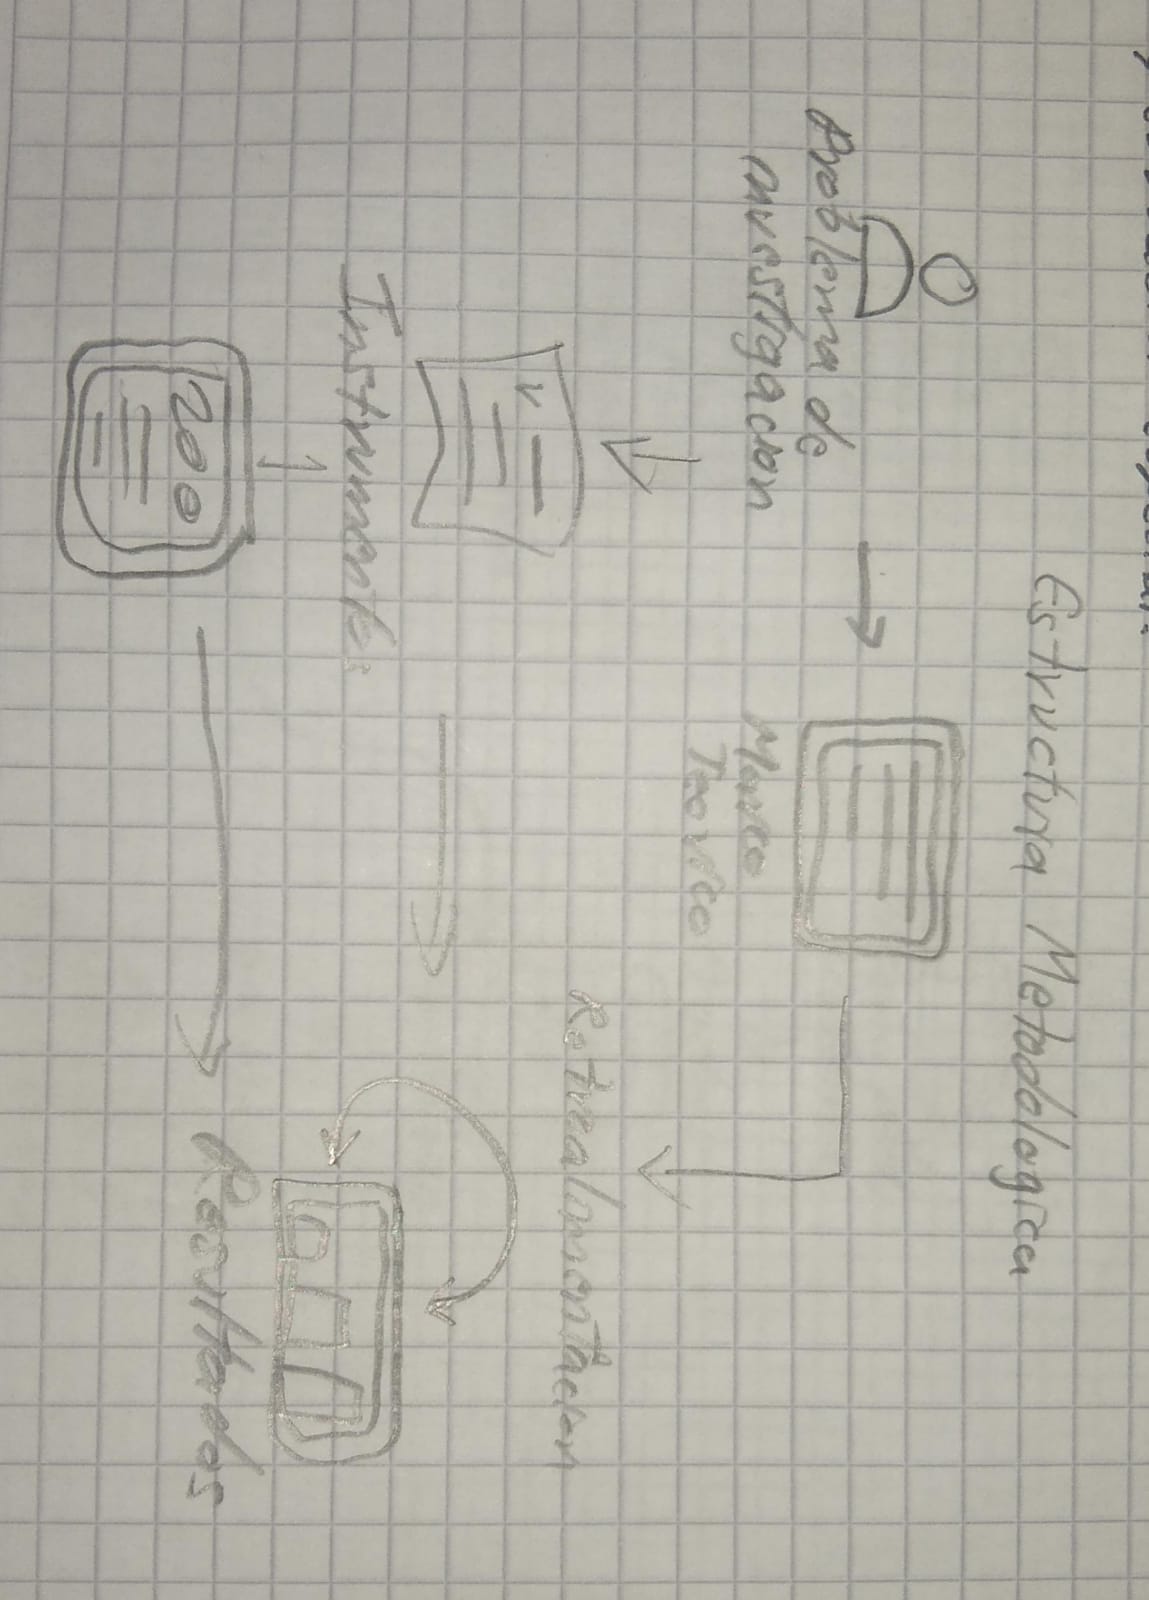 Estructura Metodologica
Problema de
investigacion
Marco
Teorico
Retroalimentacion
Instrumento:
Resultados